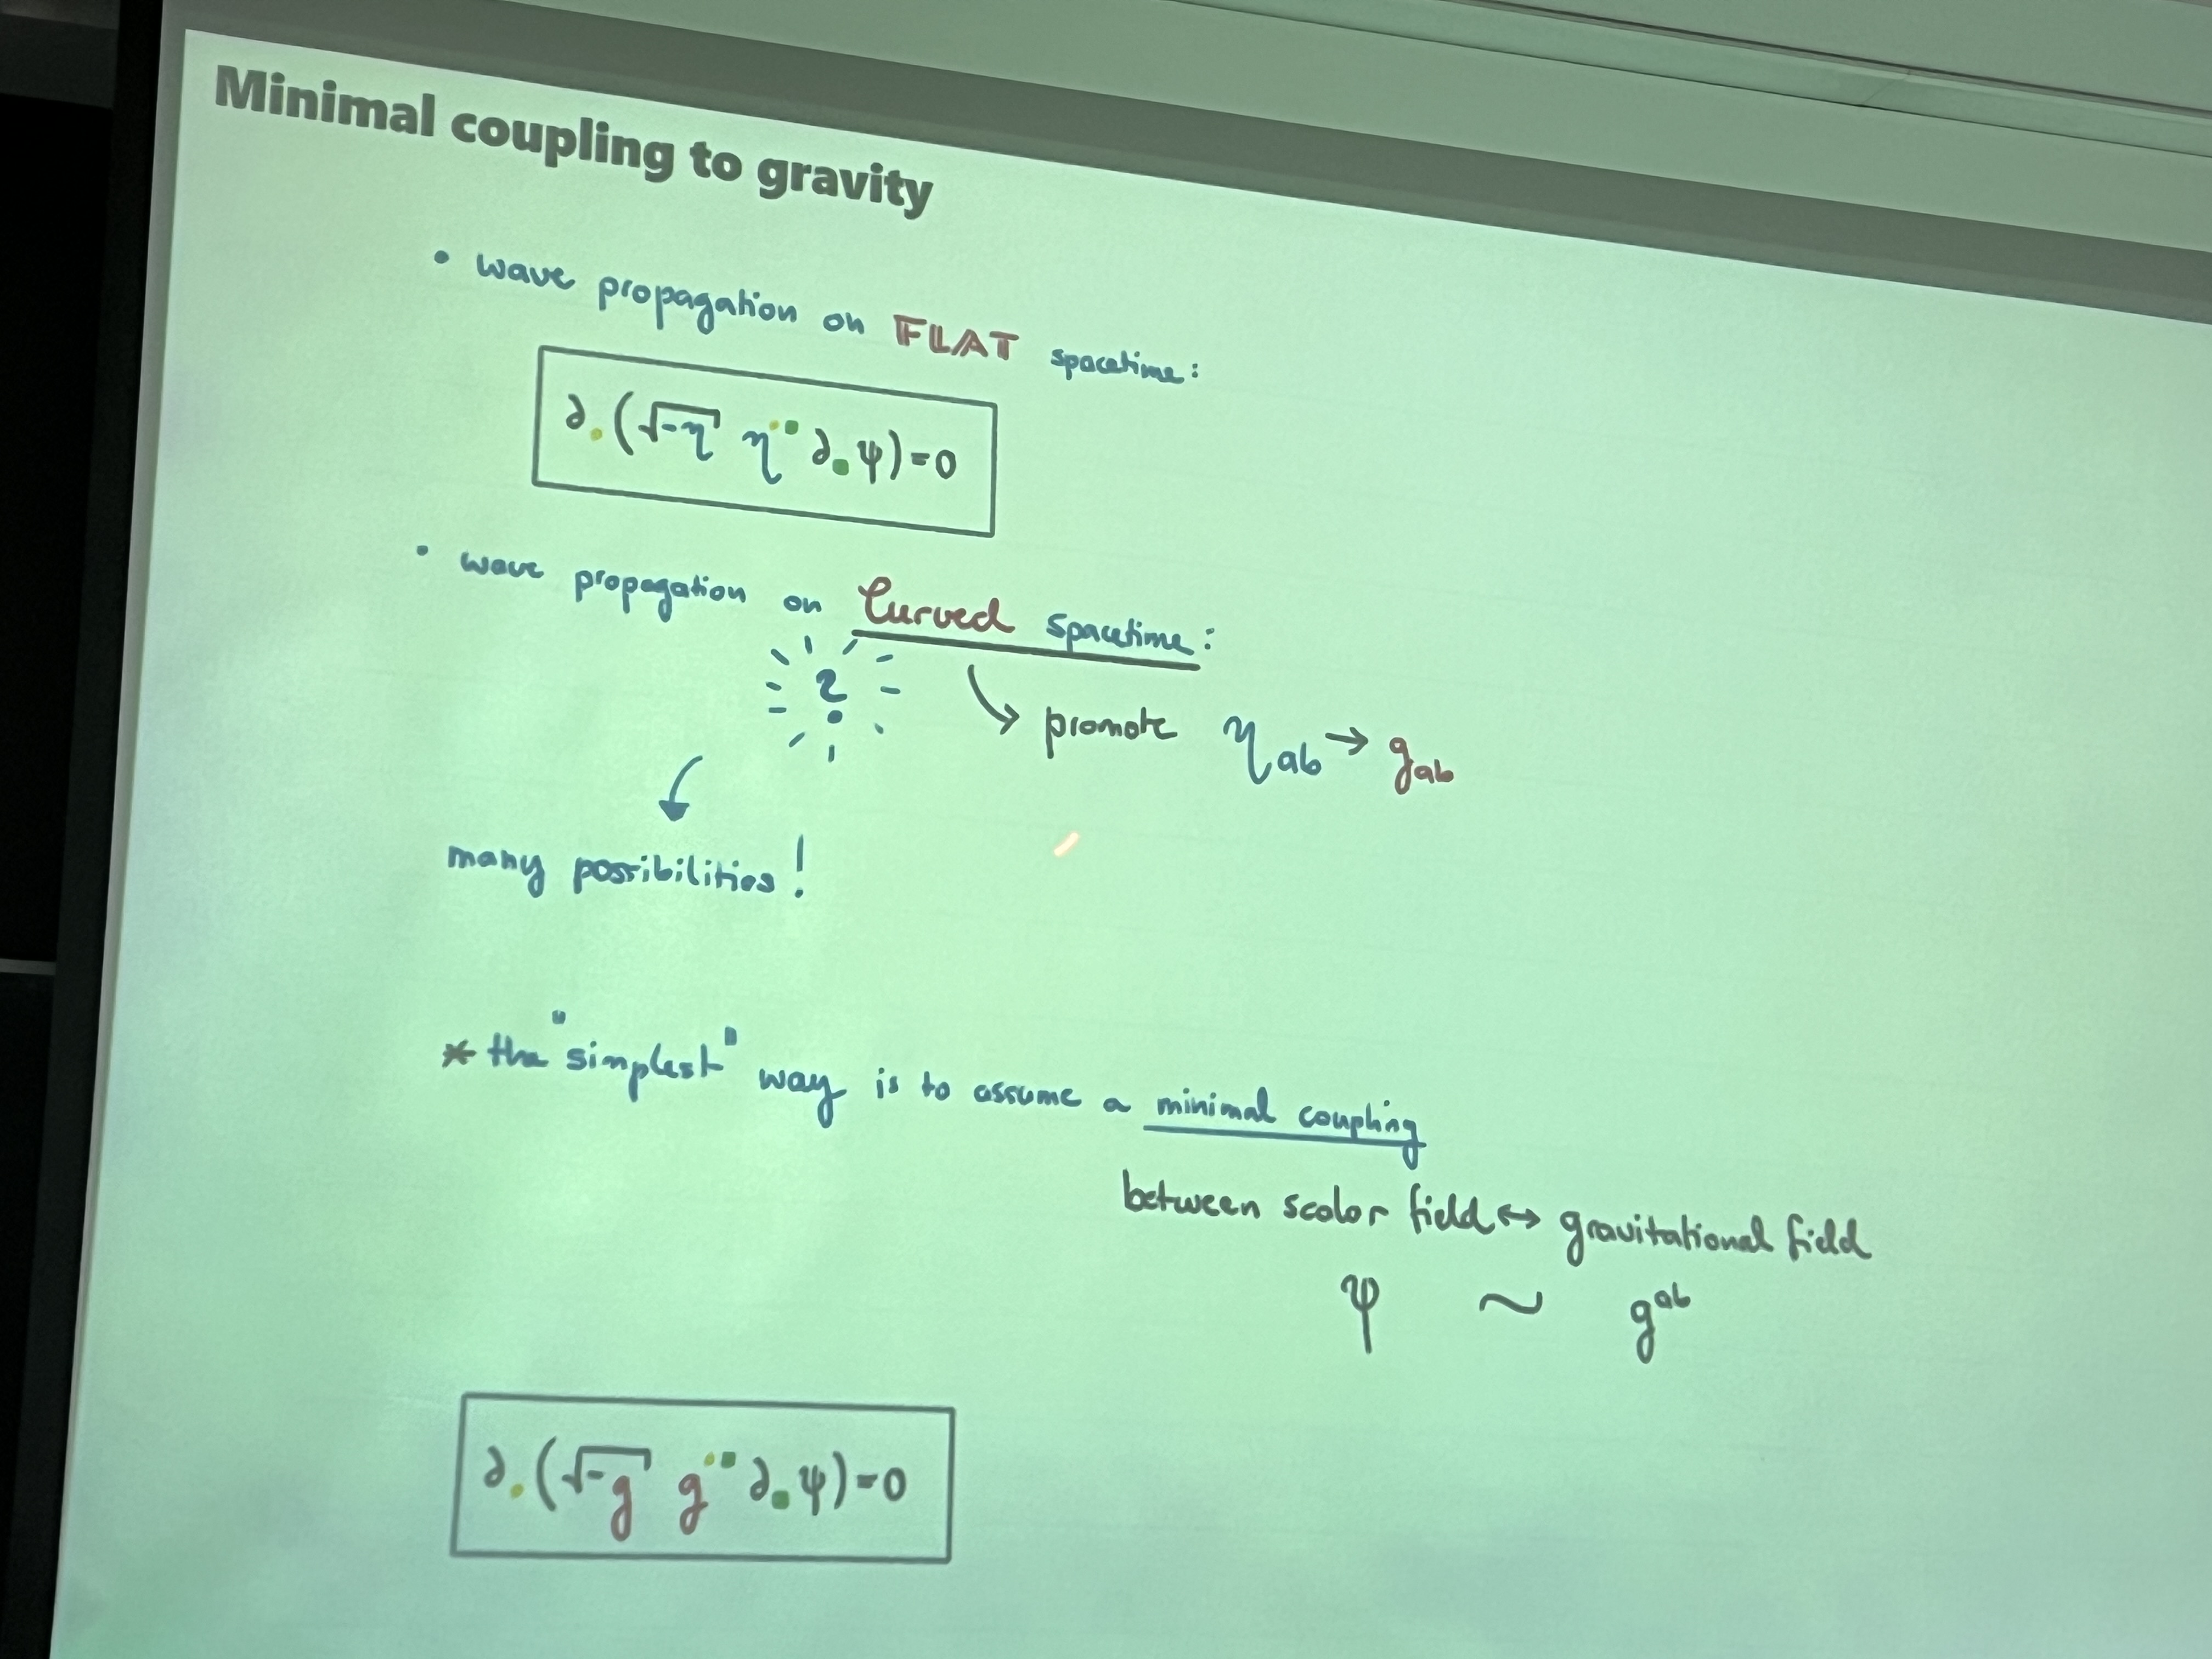 Minimal coupling to gravity
• wave propagation on FLAT spacetime:
∂.(√-η η^.▪ ∂▪ψ)=0
• wave propagation on Curved spacetime:
?
promote ηab → gab
many possibilities!
* the "simplest" way is to assume a minimal coupling
between scolor field ↔ gravitational field
ψ ~ g^ab
∂.(√-g g^.▪ ∂▪ψ)=0